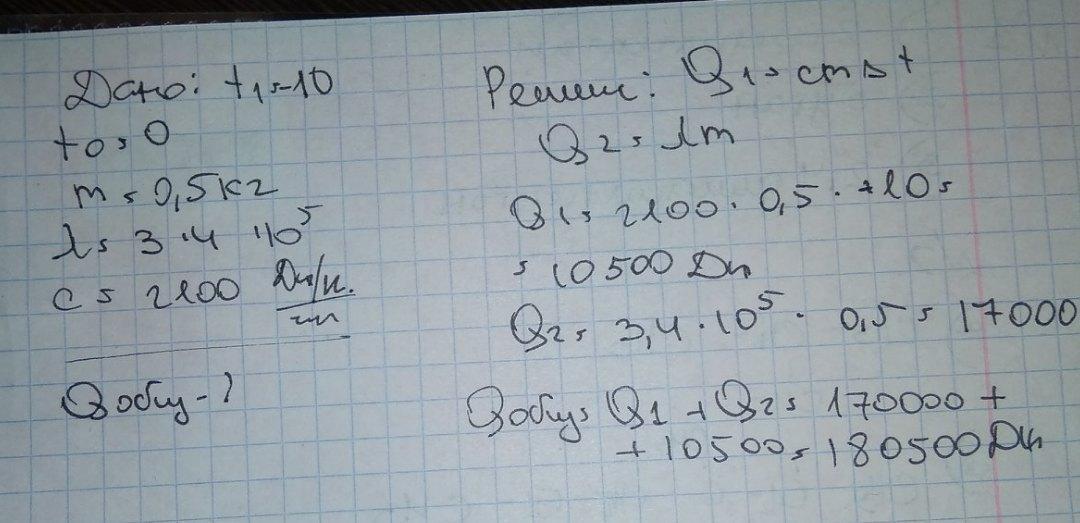 Дано: t₁=-10
t₀=0
m=0,5кг
λ=3,4·10⁵
c=2100 Дж/к.
Qобщ-?
Решение: Q₁=cmΔt
Q₂=λm
Q₁=2100·0,5·+10=
=10500 Дж
Q₂=3,4·10⁵·0,5=17000
Qобщ=Q₁+Q₂=170000+
+10500=180500 Дж